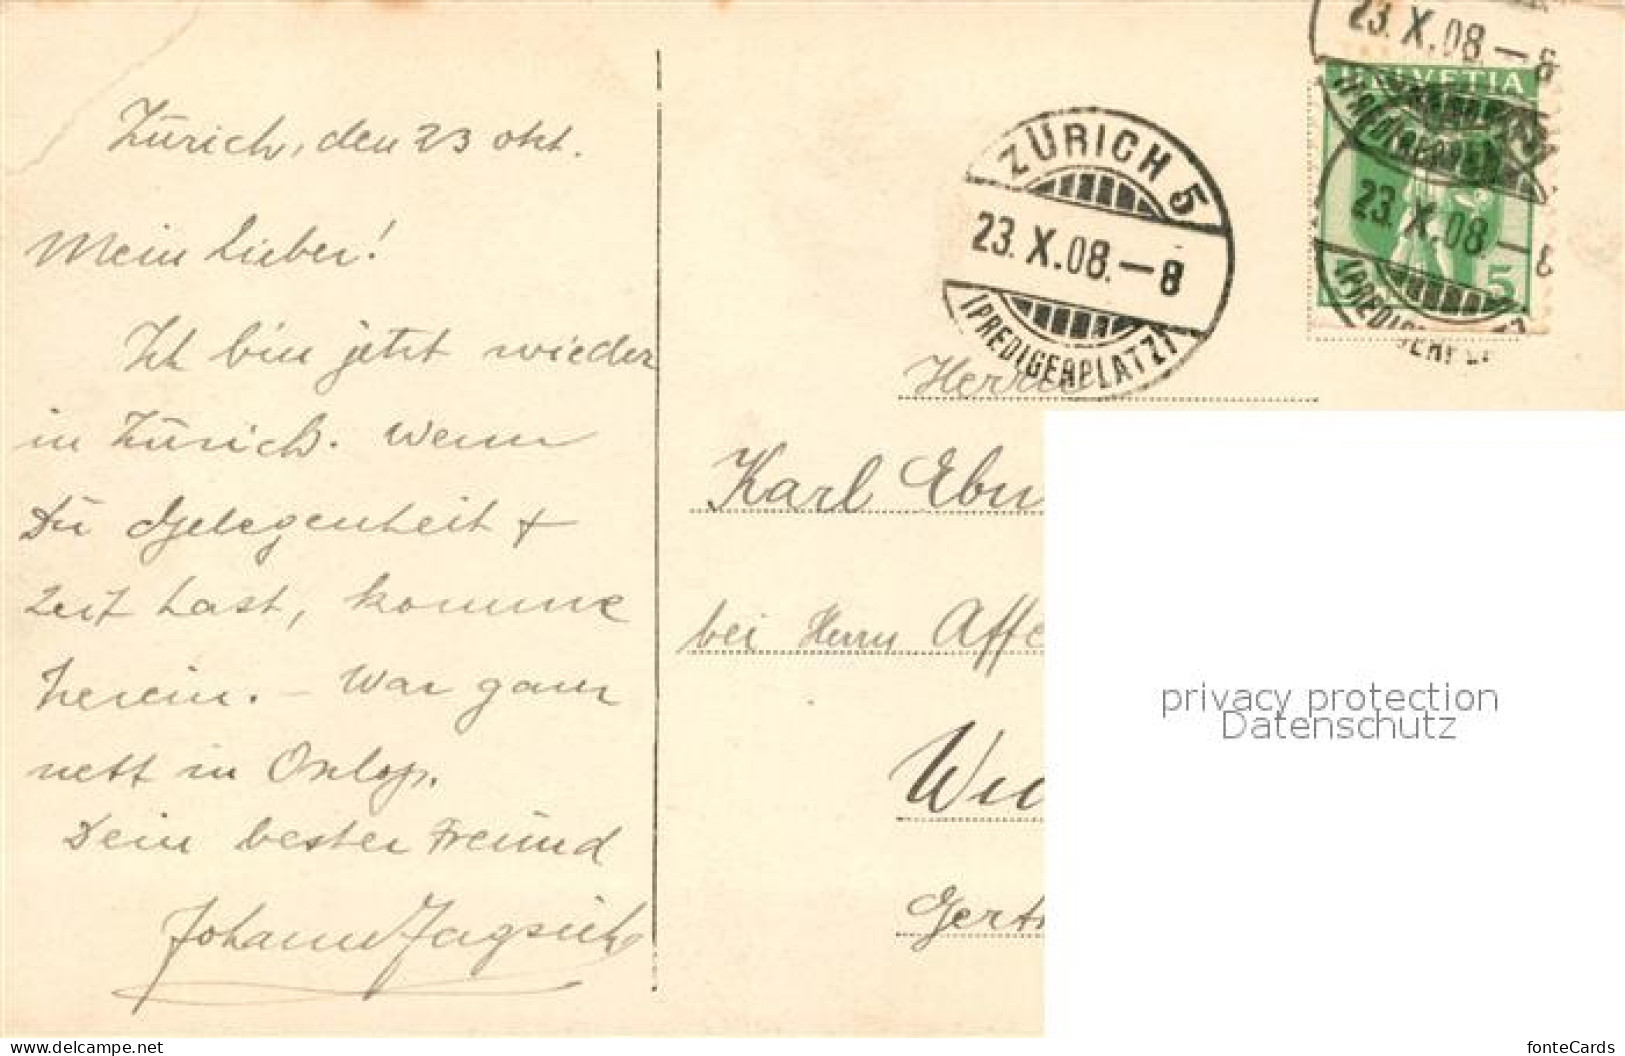 Zürich, den 23 Okt.
Mein Lieber!
Ich bin jetzt wieder
in Zürich. Wenn
Du Gelegenheit +
Zeit hast, komme
herein. – War ganz
nett in
Dein bester Freund
Johann
HELVETIA
5
23. X. 08 – 8
(PREDIGERPLATZ)
23. X. 08 – 8
(PREDIGERPLATZ)
ZÜRICH 5
23. X. 08. – 8
(PREDIGERPLATZ)
Herrn
Karl
bei Herrn Affe
privacy protection
Datenschutz
www.delcampe.net
fonteCards